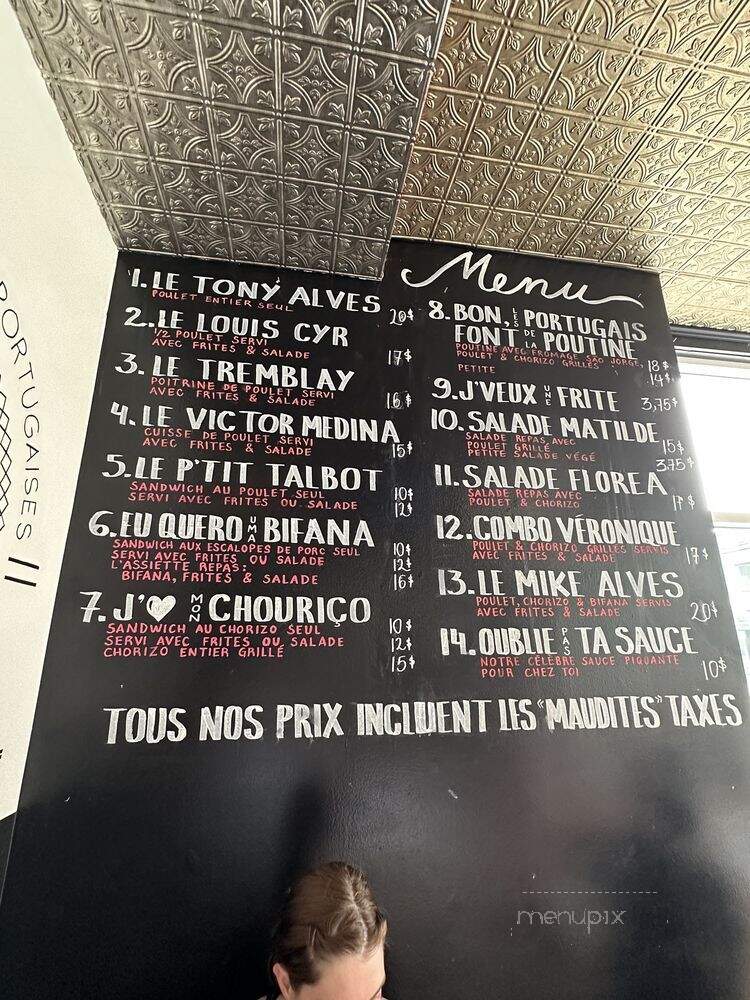 PORTUGAISES
Menu
1. LE TONY ALVES
POULET ENTIER SEUL
20$
2. LE LOUIS CYR
1/2 POULET SERVI
AVEC FRITES & SALADE
17$
3. LE TREMBLAY
POITRINE DE POULET SERVI
AVEC FRITES & SALADE
16$
4. LE VICTOR MEDINA
CUISSE DE POULET SERVI
AVEC FRITES & SALADE
15$
5. LE P'TIT TALBOT
SANDWICH AU POULET SEUL 10$
SERVI AVEC FRITES OU SALADE 12$
6. EU QUERO UMA BIFANA
SANDWICH AUX ESCALOPES DE PORC SEUL 10$
SERVI AVEC FRITES OU SALADE 12$
L'ASSIETTE REPAS:
BIFANA, FRITES & SALADE 16$
7. J'♥ MON CHOURIÇO
SANDWICH AU CHORIZO SEUL 10$
SERVI AVEC FRITES OU SALADE 12$
CHORIZO ENTIER GRILLÉ 15$
8. BON, LES PORTUGAIS
FONT DE LA POUTINE
POUTINE AVEC FROMAGE SAO JORGE,
POULET & CHORIZO GRILLÉS 18$
PETITE 14$
9. J'VEUX UNE FRITE 3,75$
10. SALADE MATILDE
SALADE REPAS AVEC
POULET GRILLÉ 15$
PETITE SALADE VÉGÉ 3,75$
11. SALADE FLOREA
SALADE REPAS AVEC
POULET & CHORIZO
12. COMBO VÉRONIQUE
POULET & CHORIZO GRILLÉS SERVIS
AVEC FRITES & SALADE 17$
13. LE MIKE ALVES
POULET, CHORIZO & BIFANA SERVIS
AVEC FRITES & SALADE 20$
14. OUBLIE PAS TA SAUCE
NOTRE CÉLÈBRE SAUCE PIQUANTE
POUR CHEZ TOI 10$
TOUS NOS PRIX INCLUENT LES "MAUDITES" TAXES
menupix